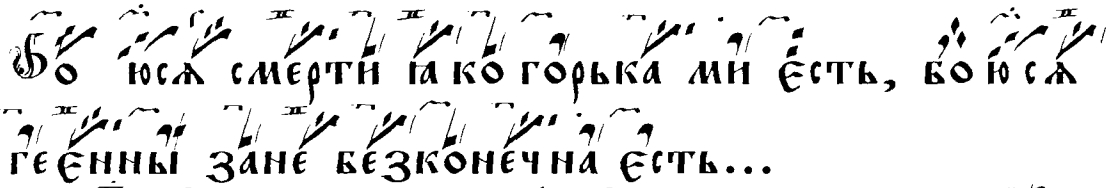 Бою́ся сме́рти ꙗко го́рька ми є́сть, бою́ся
гее́нны зане́ безконе́чна є́сть...